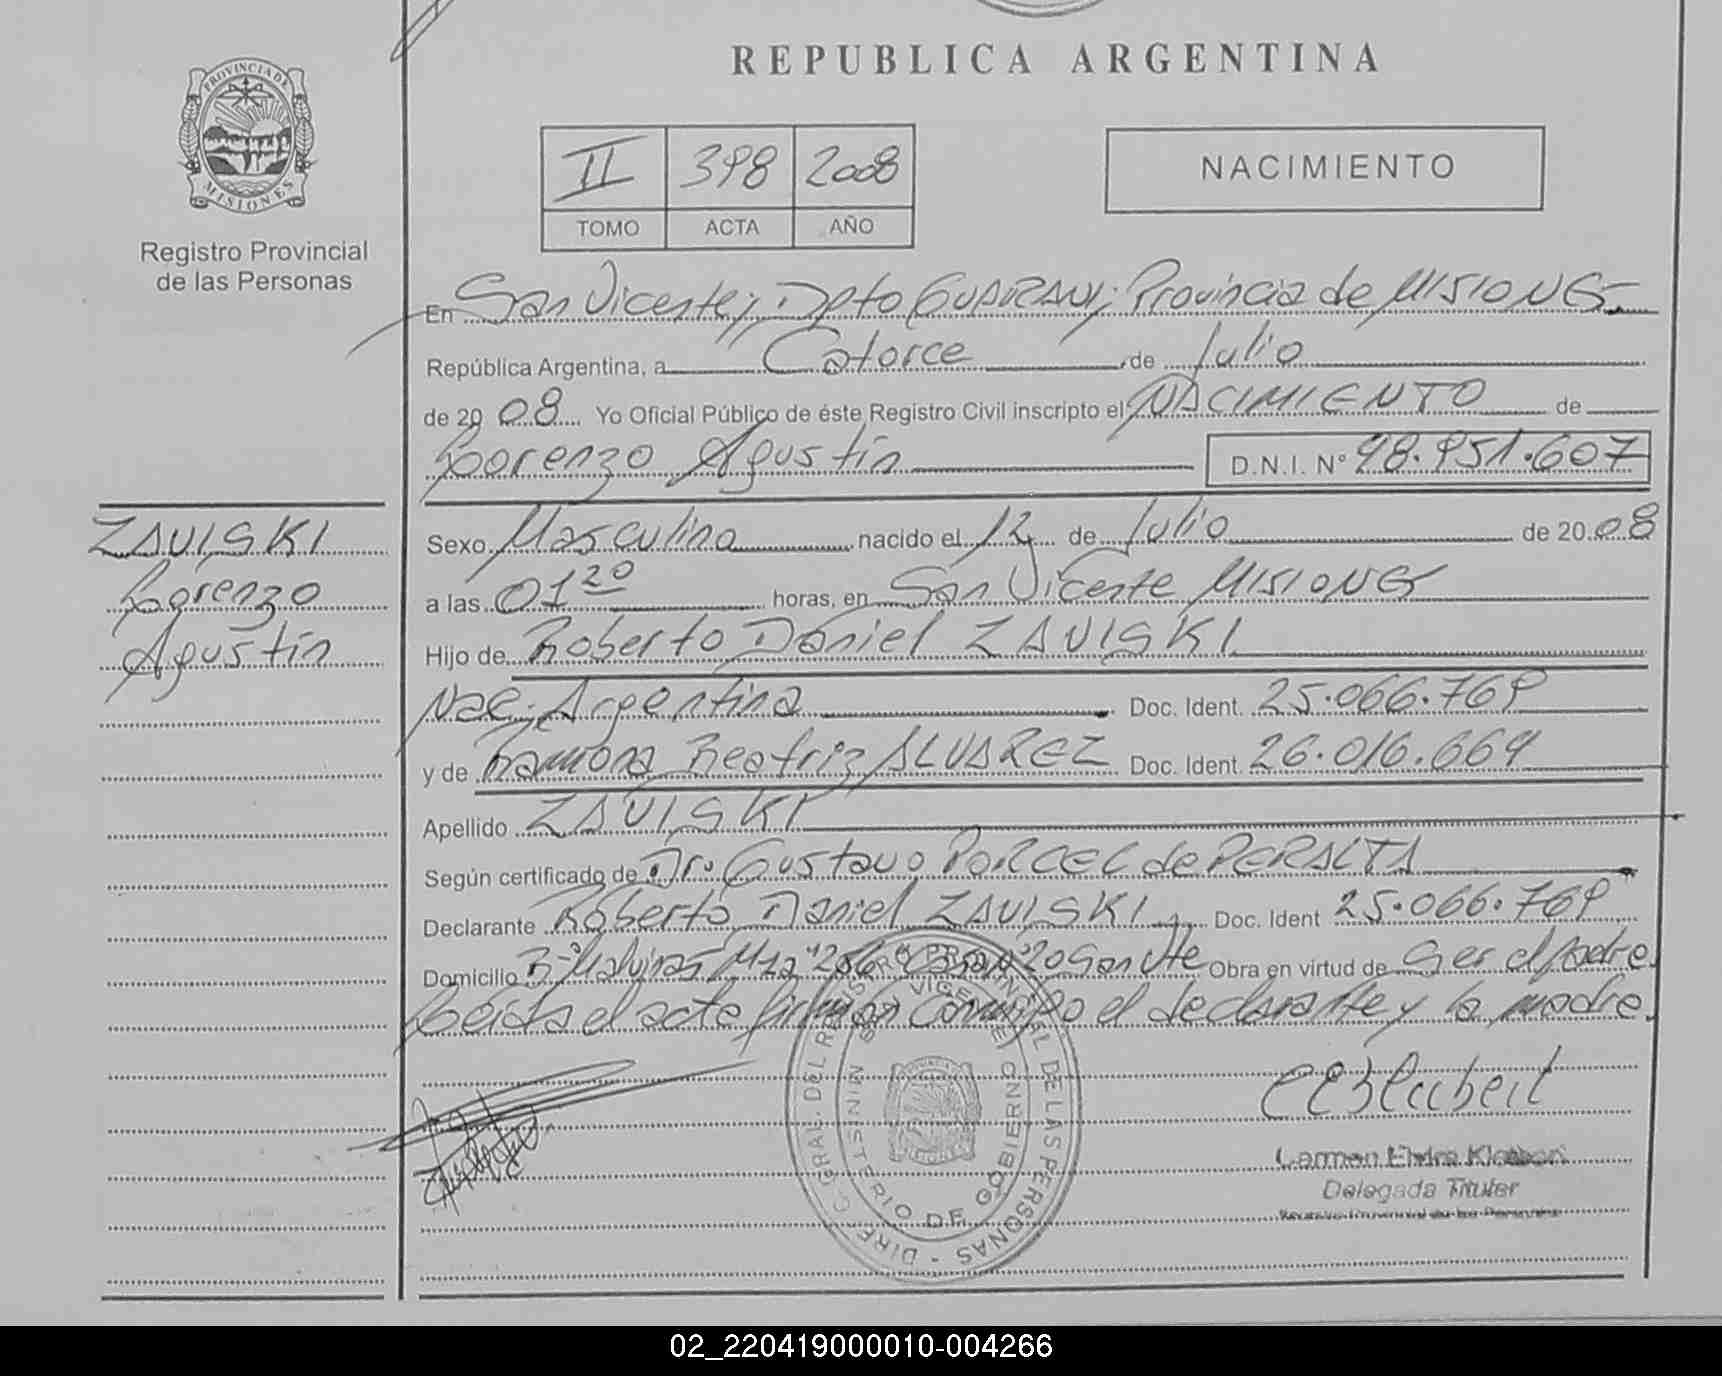 REPUBLICA ARGENTINA
PROVINCIA DE
MISIONES
Registro Provincial
de las Personas
II 398 2008
TOMO ACTA AÑO
NACIMIENTO
En San Vicente, Dpto GUARANI, Provincia de MISIONES
República Argentina, a Catorce de Julio
de 20 08 Yo Oficial Público de éste Registro Civil inscripto el NACIMIENTO de
Lorenzo Agustín D.N.I. Nº 48.951.607
ZAVISKI
Lorenzo
Agustín
Sexo Masculino nacido el 12 de Julio de 20 08
a las 01 20 horas, en San Vicente MISIONES
Hijo de Roberto Daniel ZAVISKI
Nac. Argentina Doc. Ident. 25.066.769
y de Ramona Beatriz ALVAREZ Doc. Ident. 26.016.664
Apellido ZAVISKI
Según certificado de Dr. Gustavo PORCEL de PERALTA
Declarante Roberto Daniel ZAVISKI Doc. Ident 25.066.769
Domicilio Bº Malvinas Mza 206 Casa Nº 20 San Vte Obra en virtud de Ser el padre.
Leida el acta firman conmigo el declarante y la madre.
DIREC. GRAL. DEL REGISTRO PROVINCIAL DE LAS PERSONAS
MINISTERIO DE GOBIERNO
Carmen
Delegada Titular
Registro Provincial de las Personas
02_220419000010-004266